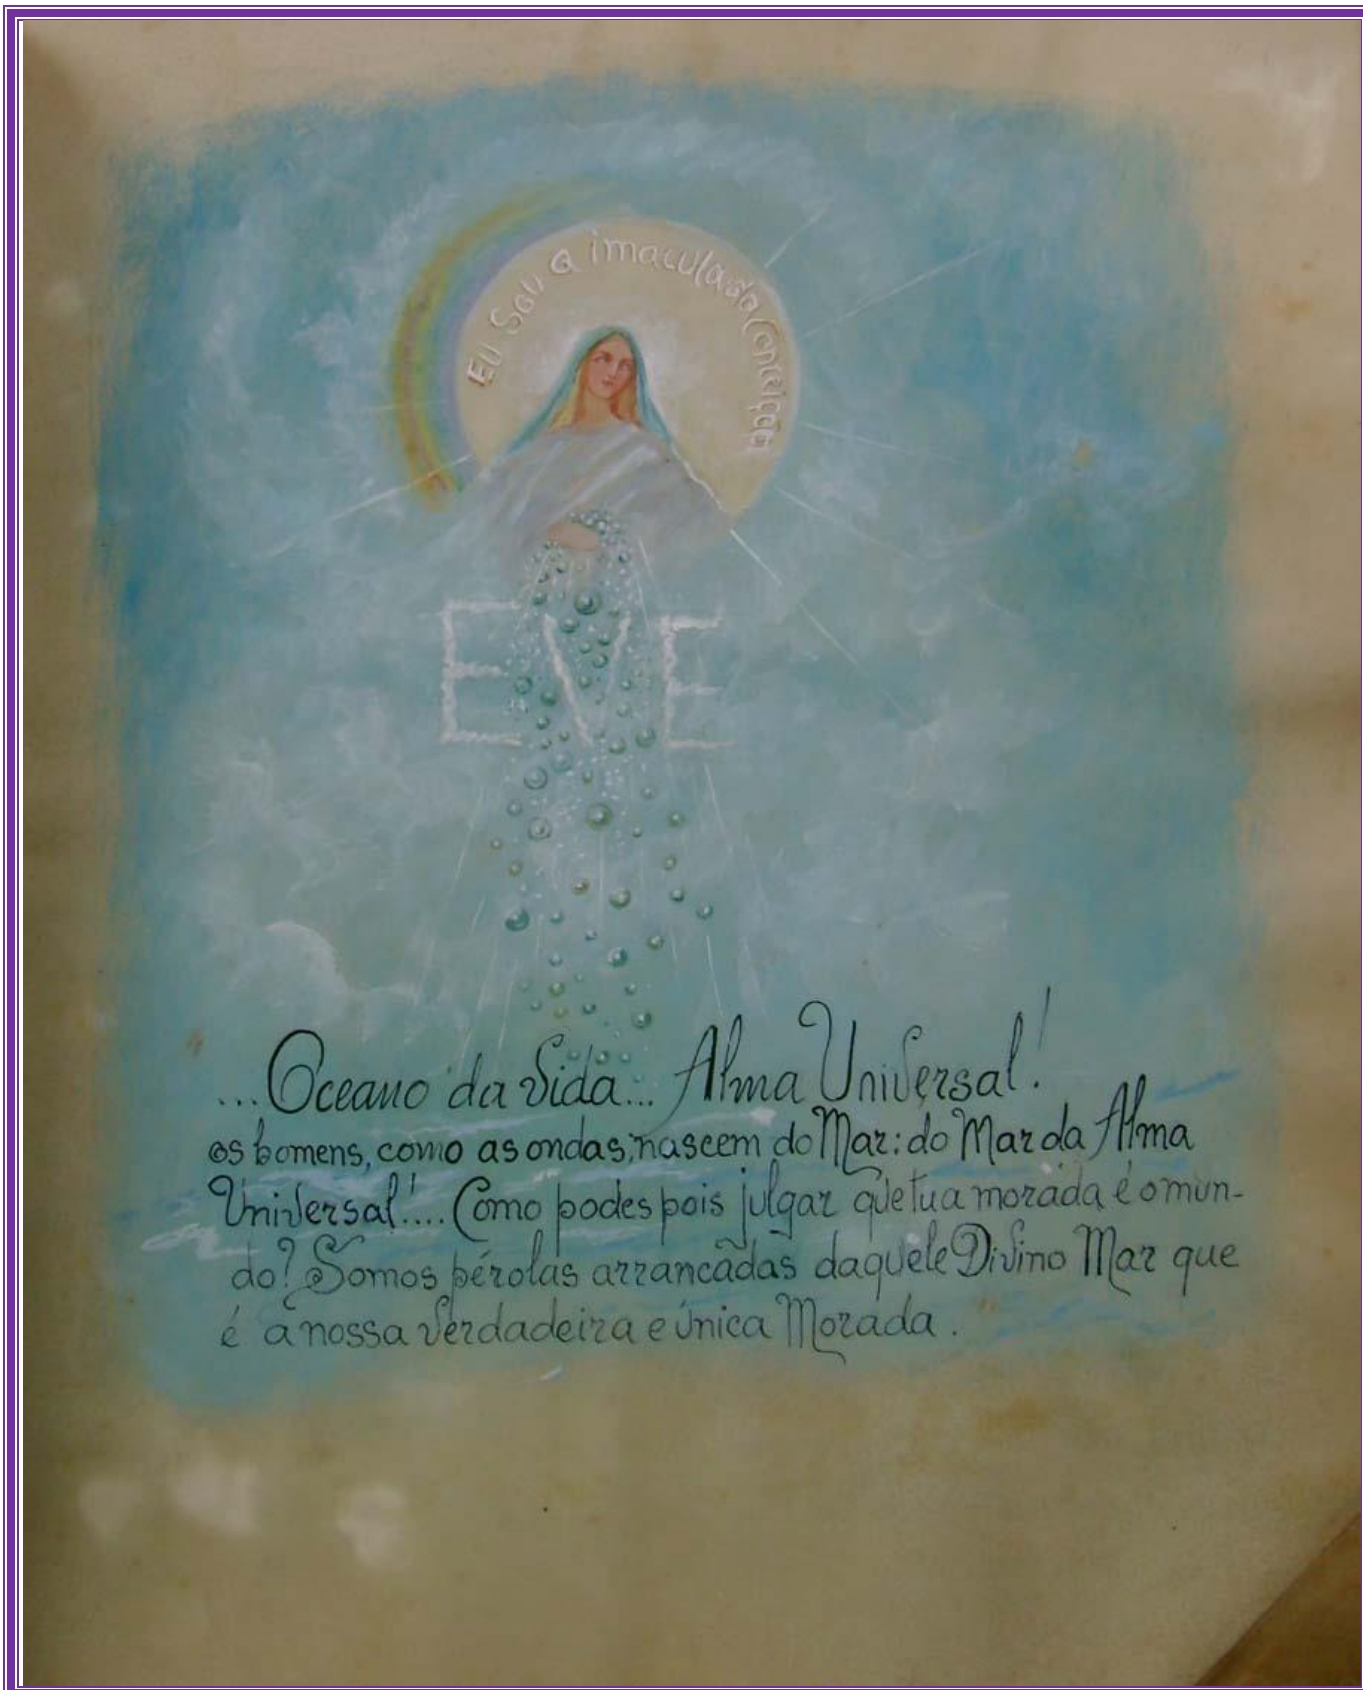 Eu Sou a imaculada Conceição
EVE
...Oceano da Vida... Alma Universal!
os homens, como as ondas, nascem do Mar: do Mar da Alma
Universal!.... Como podes pois julgar que tua morada é o mun-
do? Somos pérolas arrancadas daquele Divino Mar que
é a nossa Verdadeira e única Morada.